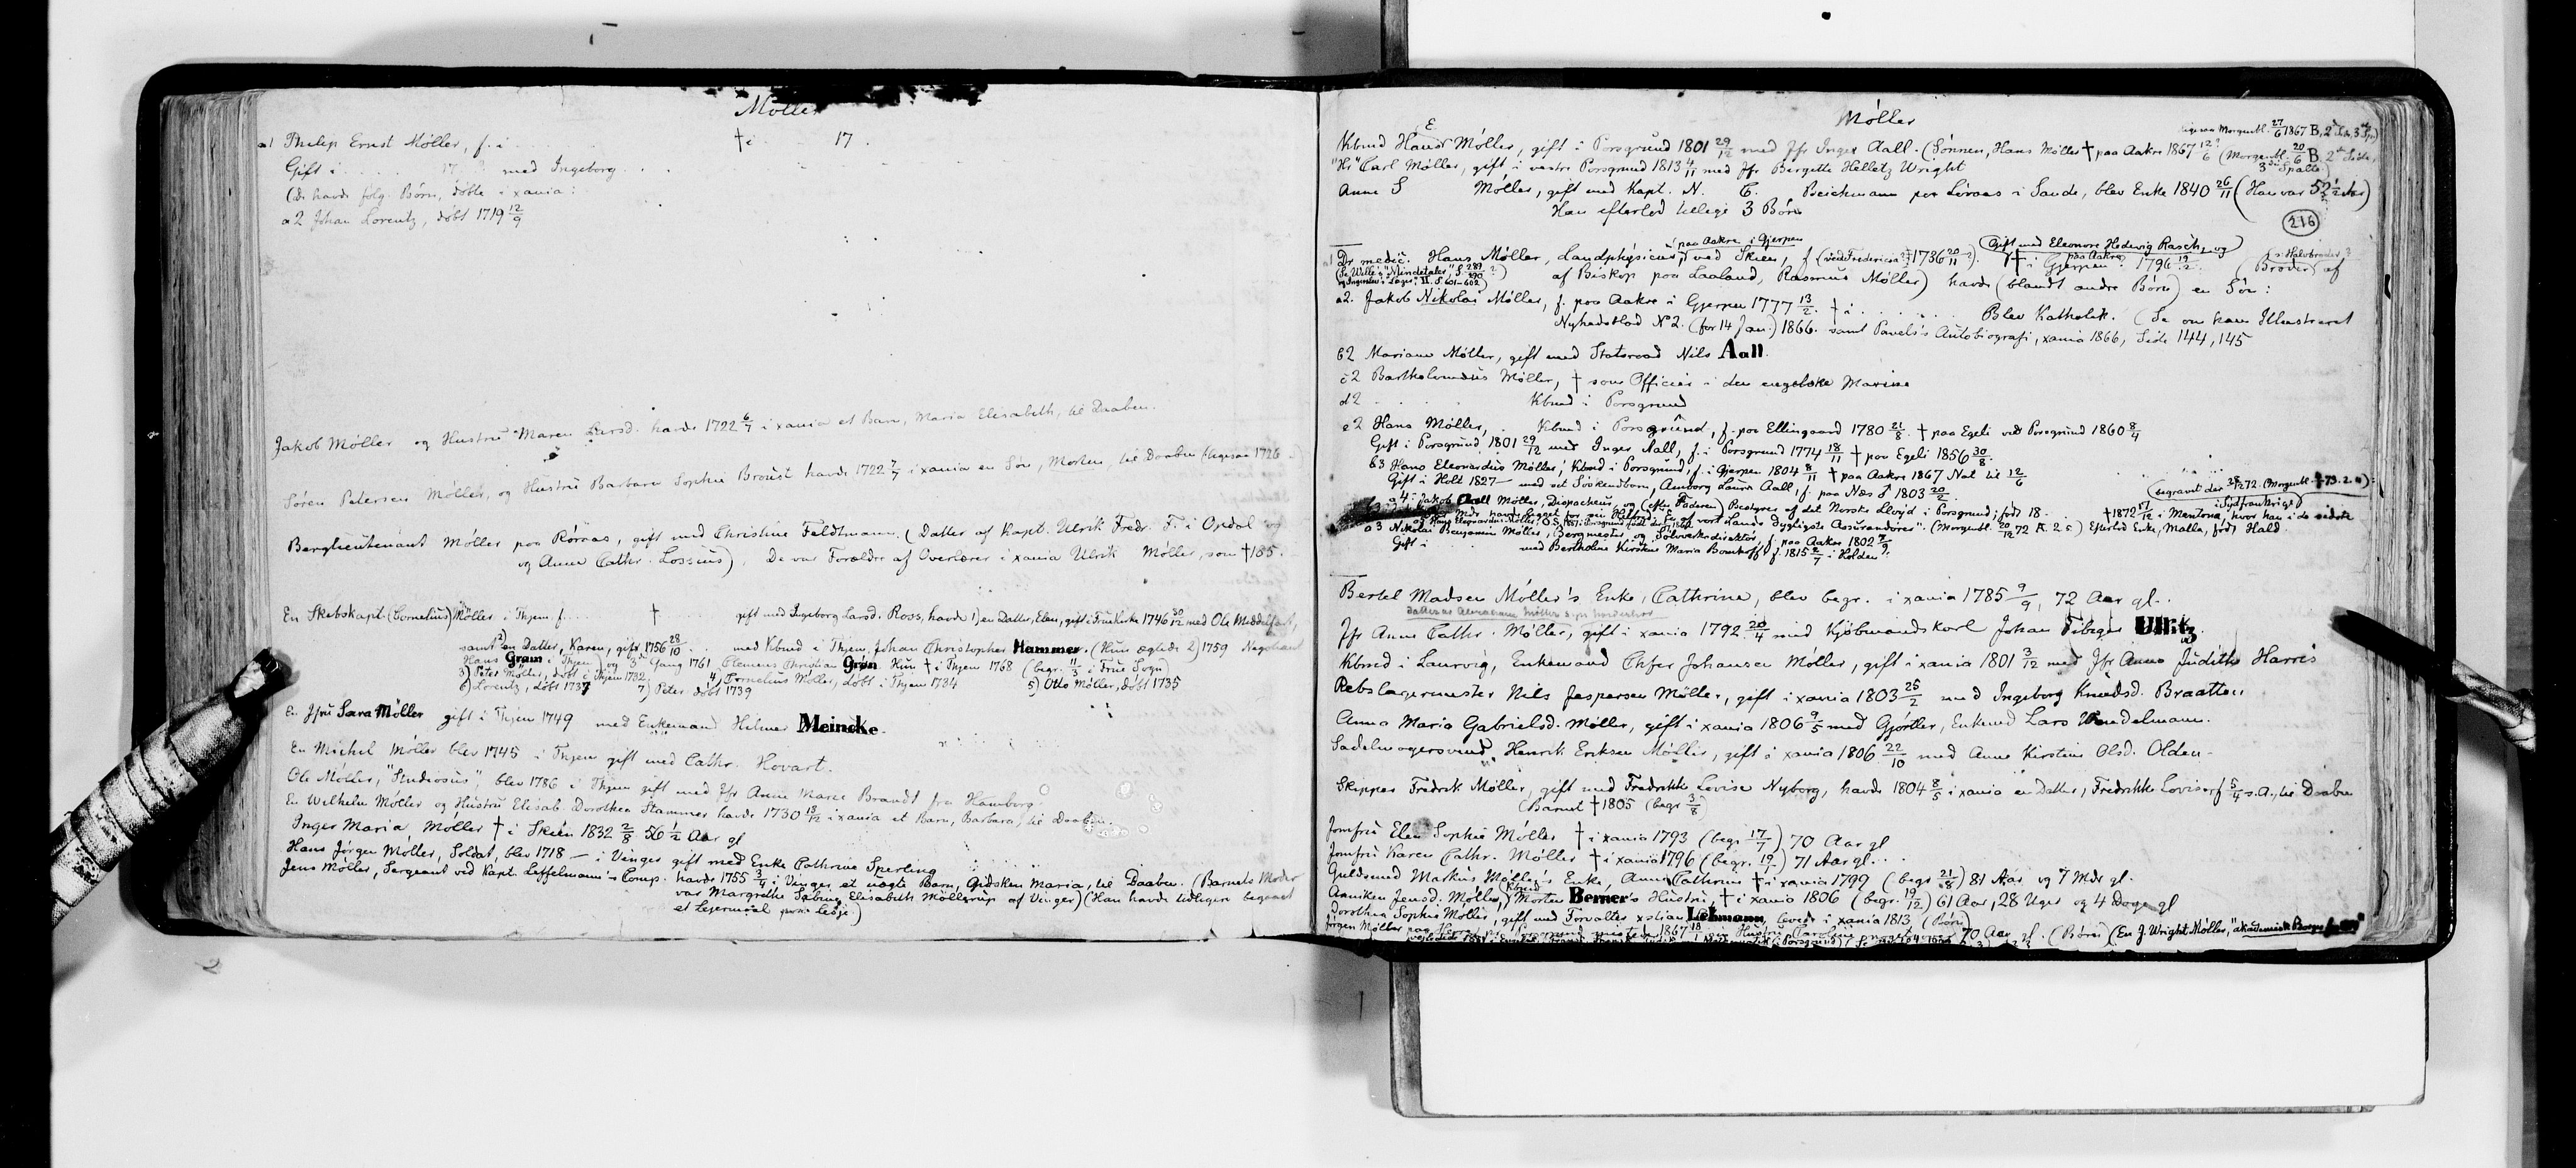 Møller
a1 Philip Ernst Møller, f. i † i 17 .
Gift i . . . . 17 med Ingeborg . . .
(De havde følg. Børn, døbte i xania:
a2 Johan Lorentz, døbt 1719 12/9
Jakob Møller og Hustru Maren Larsd. havde 1722 6/7 i xania et Barn, Maria Elisabeth, til Daaben.
Søren Petersen Møller, og Hustru Barbara Sophie Broust havde 1722 7/7 i xania en Søn, Morten, til Daaben (ligesaa 1726
Berglieutenant Møller paa Røraas, gift med Christine Feldtmann. (Datter af Kapt. Ulrik Fredr. F. i Opdal og
og Anne Cathr. Lossius). De var Forældre af Overlærer i xania Ulrik Møller, som † 185.
En Skibskapt. (Cornelius) Møller i Thjem f. . . . † gift med Ingeborg Larsd. Ross, havde 1) en Datter, Elen, gift i Frue Kirke 1746 30/12 med Ole Meddelfart,
samt 2) en Datter, Karen, gift 1756 28/10 . . med Kbmd i Thjem, Johan Christopher Hammer. (Hun ægtede 2) 1759 Negotiant
Hans Gram i Thjem) og 3die Gang 1761 Clemens Christian Grøn Hun † i Thjem 1768 (begr. 11/3 i Frue Sogn)
3) Peter Møller, døbt i Thjem 1732. 4) Cornelius Møller, døbt i Thjem 1734 5) Otto Møller, døbt 1735
6) Lorentz, døbt 1737 7) Peter døbt 1739
En Jfru Sara Møller gift i Thjem 1749 med Enkemand Helmer Meincke.
En Michel Møller blev 1745 i Thjem gift med Cathr. Hovart.
Ole Møller, "Studiosus", blev 1786 i Thjem gift med Jfr Anne Marie Brandt fra Hamborg.
En Wilhelm Møller og Hustru Elisab. Dorothea Stammer havde 1730 18/12 i xania et Barn, Barbara, til Daaben.
Inger Maria Møller † i Skien 1832 2/8 56 1/2 Aar gl
Hans Jörgen Møller, Soldat, blev 1718 — i Vinger gift med Enke Cathrine Sperling
Jens Møller, Sergeant ved Kapt. Leffelmann's Comp. havde 1755 3/4 i Vinger et uægte Barn, Gidsken Maria, til Daaben. (Barnets Moder
var Margrethe Elisabeth Møllerup af Vinger) (Han havde tidligere begaaet
et Lejermaal paa Lesje)
Møller
ligesaa Morgenbl. 27/6 1867 B, 2den Side, 3die Sp.)
Kbmd Hans E Møller, gift i Porsgrund 1801 29/12 med Jfr Inger Aall. (Sønnen, Hans Møller † paa Aakre 1867 12/6 (Morgenbl. 20/6 B. 2den Side,
3die Spalte)
"Hr" Carl Møller, gift i vestre Porsgrund 1813 4/11 med Jfr Bergette Helletz Wright
Anne S Møller, gift med Kapt. N. C. Beichmann paa Löraas i Sande, blev Enke 1840 26/11 (Han var 52 1/2 Aar)
Han efterlod tillige 3 Børn
216
a1 Dr medic. Hans Møller, Landphysicus paa Aakre i Gjerpen ved Skien, f (ved Fredericia ? 1736 20/11 ?). Gift med Eleonore Hedevig Rasch, og † i Gjerpen paa Aakre 1796 19/2. (Broder (: Halvbroder?) af
(Se Wille's "Mindetaler", S. 289, 290 ?) af Biskop paa Laaland, Rasmus Møller) havde (blandt andre Børn) en Søn:
II. S. 601-602)
a2. Jakob Nikolai Møller, f. paa Aakre i Gjerpen 1777 13/2. † i . . . . Blev Katholik. (Se om ham Illustreret
Nyhedsblad No 2. (for 14 Jan.) 1866. samt Pavels's Autobiografi, xania 1866, Side 144, 145
b2 Mariane Møller, gift med Statsraad Nils Aall.
c2 Bartholomæus Møller, † som Officier i den engelske Marine
d2 . . . . Kbmd i Porsgrund
e2 Hans Møller, Kbmd i Porsgrund, f. paa Ellingaard 1780 21/8. † paa Egeli ved Porsgrund 1860 8/4
Gift i Porsgrund 1801 29/12 med Inger Aall, f. i Porsgrund 1774 18/11 † paa Egeli 1856 30/8.
b3 Hans Eleonardus Møller, Kbmd i Porsgrund, f. i Gjerpen 1804 8/11 † paa Aakre 1867 Nat til 12/6
Gift i Holt 1827 — med sit Söskendbarn, Amborg Laura Aall, f. paa Næs 1803 20/2.
a4: Jakob Aall Møller, Dispacheur, og (efter Faderen) Bestyrer af det Norske Lloyd i Porsgrund; født 18 - † 1872 17/12 i Mentona, i Sydfrankrige) hvor han i de sidste
vort Lands dygtigste Assurandører". (Morgenbl. 20/12 72 A. 2 c) Efterlod Enke, Malla, født Hald.
a3 Nikolai Benjamin Møller, Bergmester og Sølvverksdirektør, f. paa Aakre 1802 7/9.
Gift i med Bertholine Kirstine Maria Bomhoff f. 1815 2/7 i Holden
Bertel Madsen Møller's Enke, Cathrine, blev begr. i xania 1785 9/9, 72 Aar gl.
Jfr Anne Cathr. Møller, gift i xania 1792 20/4 med Kjøbmandskarl Johan Fibiger Ullitz.
Kbmd i Laurvig, Enkemand Chfer Johansen Møller, gift i xania 1801 3/12 med Jfr Anne Judithe Harris
Rebslagermester Nils Jespersen Møller, gift i xania 1803 25/2 med Ingeborg Knudsd. Braatten
Anna Maria Gabrielsd. Møller, gift i xania 1806 9/5 med Gjørtler, Enkemd Lars Wendelmann.
Sadelmagersvend, Henrik Eriksen Møller, gift i xania 1806 22/10 med Anne Kirstine Olsd. Olden
Skipper Fredrik Møller, gift med Fredrikke Lovise Nyborg, havde 1804 8/5 i xania en Datter, Fredrikke Lovise f 5/4 s.A., til Daaben
(Barnet † 1805 (begr 3/8)
Jomfru Elen Sophie Møller † i xania 1793 (begr 17/7) 70 Aar gl
Jomfru Karen Cathr. Møller † i xania 1796 (begr. 19/) 71 Aar gl.
Guldsmed Markus Møller's Enke, Anne Cathrine † i xania 1799 (begr 21/8) 81 Aar og 7 Mdr gl.
Anniken Jensd. Møller, Kbmd Morten Berner's Hustru, † i xania 1806 (begr. 19/12) 61 Aar, 28 Uger og 4 Dage gl
Dorothea Sophie Møller, gift med Forvalter xstian Lehmann, levede i xania 1813 (Børn)
70 Aar gl. (Børn) (En J. Wright Møller, "akademisk Borger"